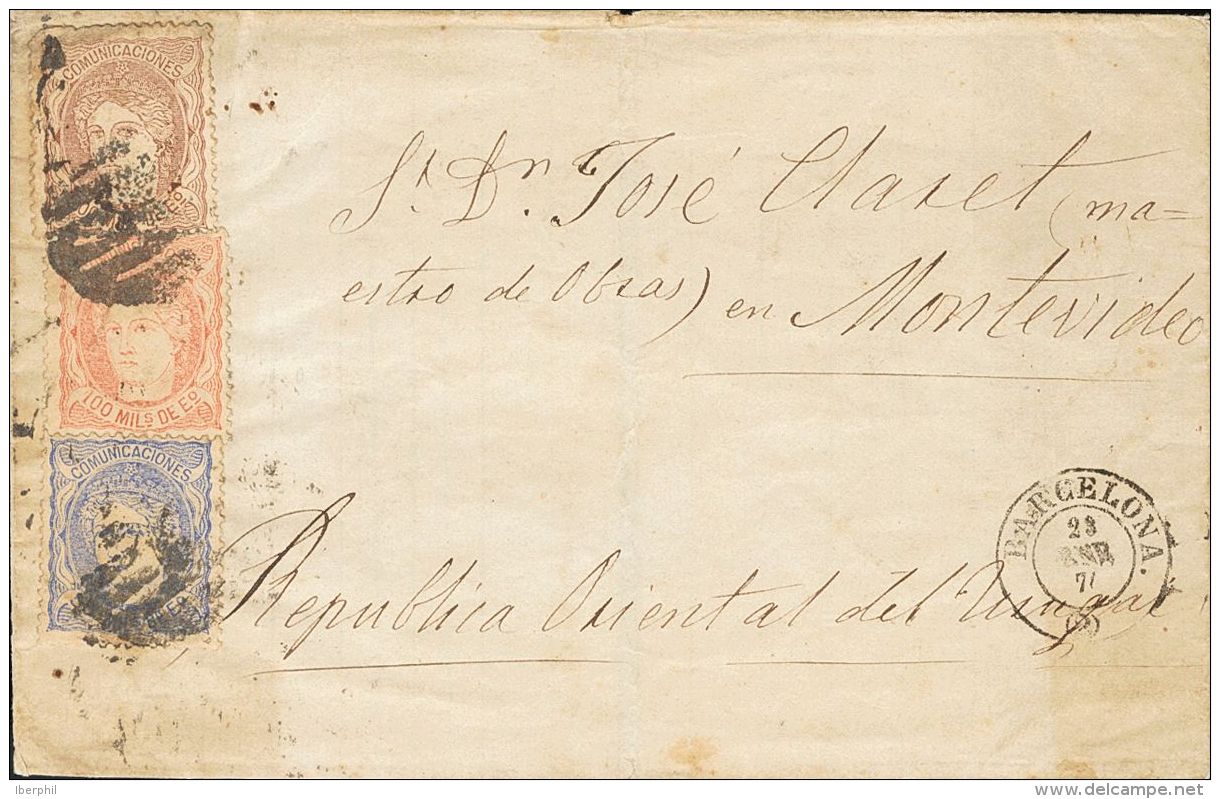 COMUNICACIONES
100 MILS DE EO
COMUNICACIONES
Sr. Dn. José Claret (ma=
estro de Obras) en Montevideo
Republica Oriental del Uruguai
BARCELONA.
23
ENE
71
Iberphil
www.delcampe.net